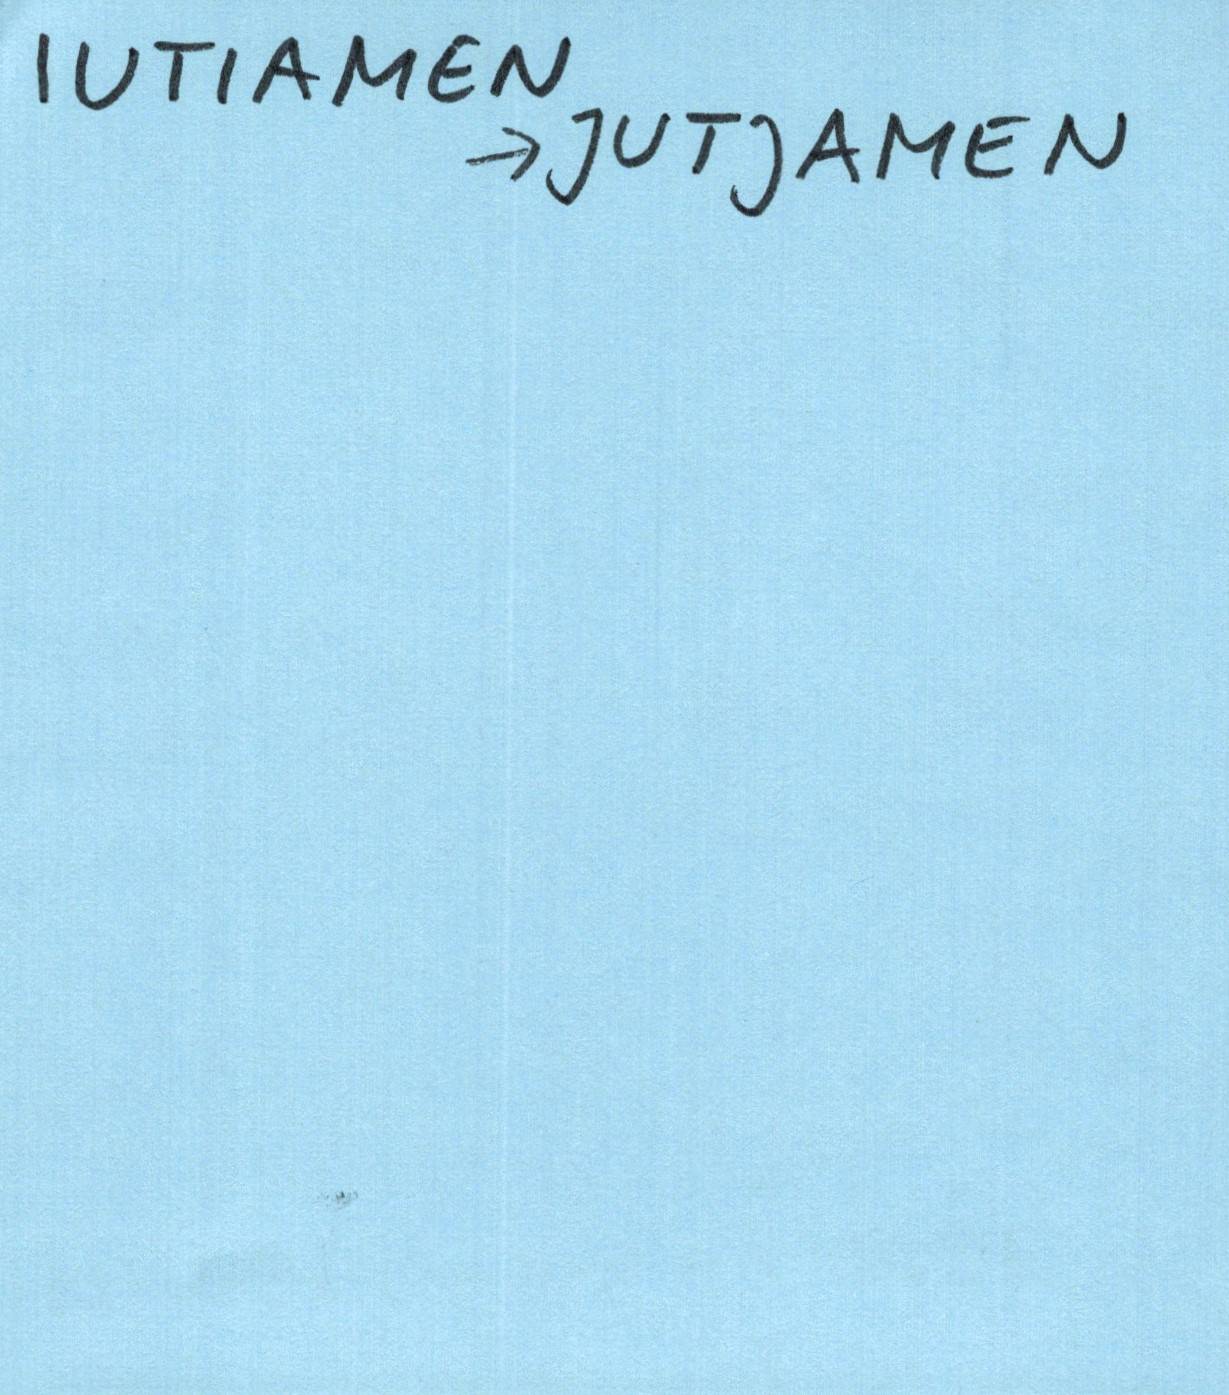 IUTIAMEN
→JUTJAMEN